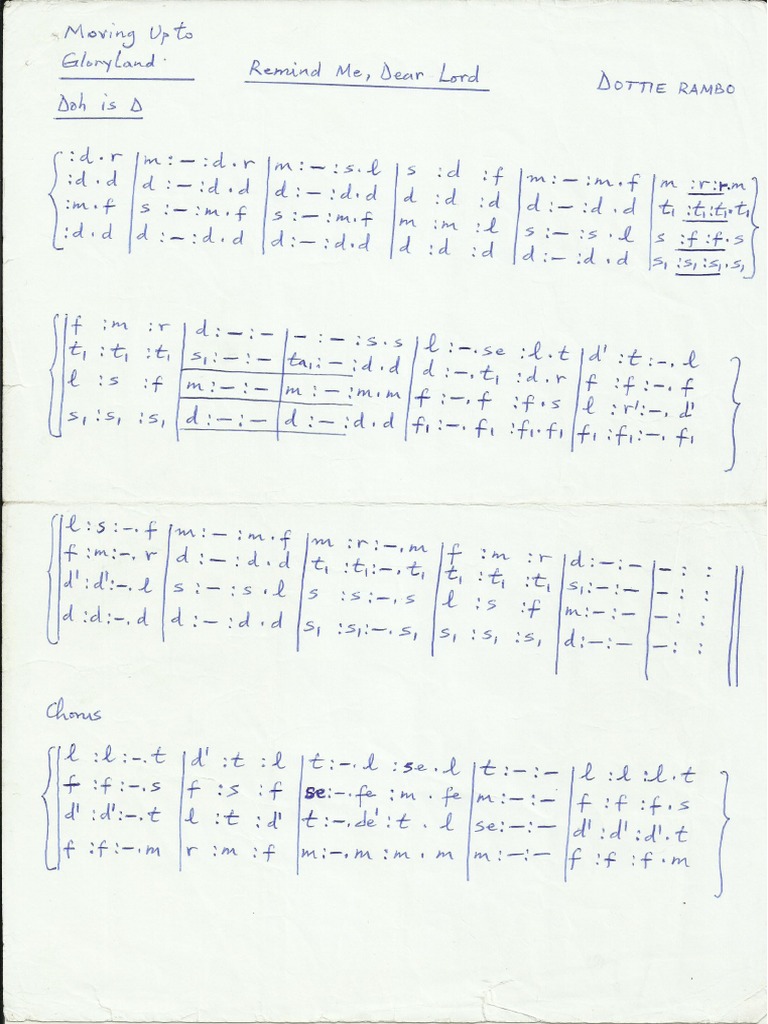 Moving Up to
GloryLand.
Remind Me, Dear Lord
DOTTIE RAMBO
Doh is D
:d.r | m:–:d.r | m:–:s.l | s :d :f | m:–:m.f | m :r:r.m
:d.d | d:–:d.d | d:–:d.d | d :d :d | d:–:d.d | t₁ :t₁:t₁.t₁
:m.f | s:–:m.f | s:–:m.f | m :m :l | s:–:s.l | s :f:f.s
:d.d | d:–:d.d | d:–:d.d | d :d :d | d:–:d.d | s₁ :s₁:s₁.s₁
f :m :r | d:–:– | –:–:s.s | l:–.se:l.t | d':t:–.l
t₁:t₁:t₁ | s₁:–:– | ta₁:–:d.d | d:–.t₁:d.r | f:f:–.f
l :s :f | m:–:– | m:–:m.m | f:–.f:f.s | l:r':–.d'
s₁:s₁:s₁ | d:–:– | d:–:d.d | f₁:–.f₁:f₁.f₁ | f₁:f₁:–.f₁
l:s:–.f | m:–:m.f | m:r:–.m | f :m :r | d:–:– | –: :
f:m:–.r | d:–:d.d | t₁:t₁:–.t₁ | t₁:t₁:t₁ | s₁:–:– | –: :
d':d':–.l | s:–:s.l | s :s:–.s | l :s :f | m:–:– | –: :
d:d:–.d | d:–:d.d | s₁:s₁:–.s₁ | s₁:s₁:s₁ | d:–:– | –: :
Chorus
l:l:–.t | d':t:l | t:–.l:se.l | t:–:– | l:l:l.t
f:f:–.s | f:s:f | se:–.fe:m.fe | m:–:– | f:f:f.s
d':d':–.t | l:t:d' | t:–.de':t.l | se:–:– | d':d':d'.t
f:f:–.m | r:m:f | m:–.m:m.m | m:–:– | f:f:f.m